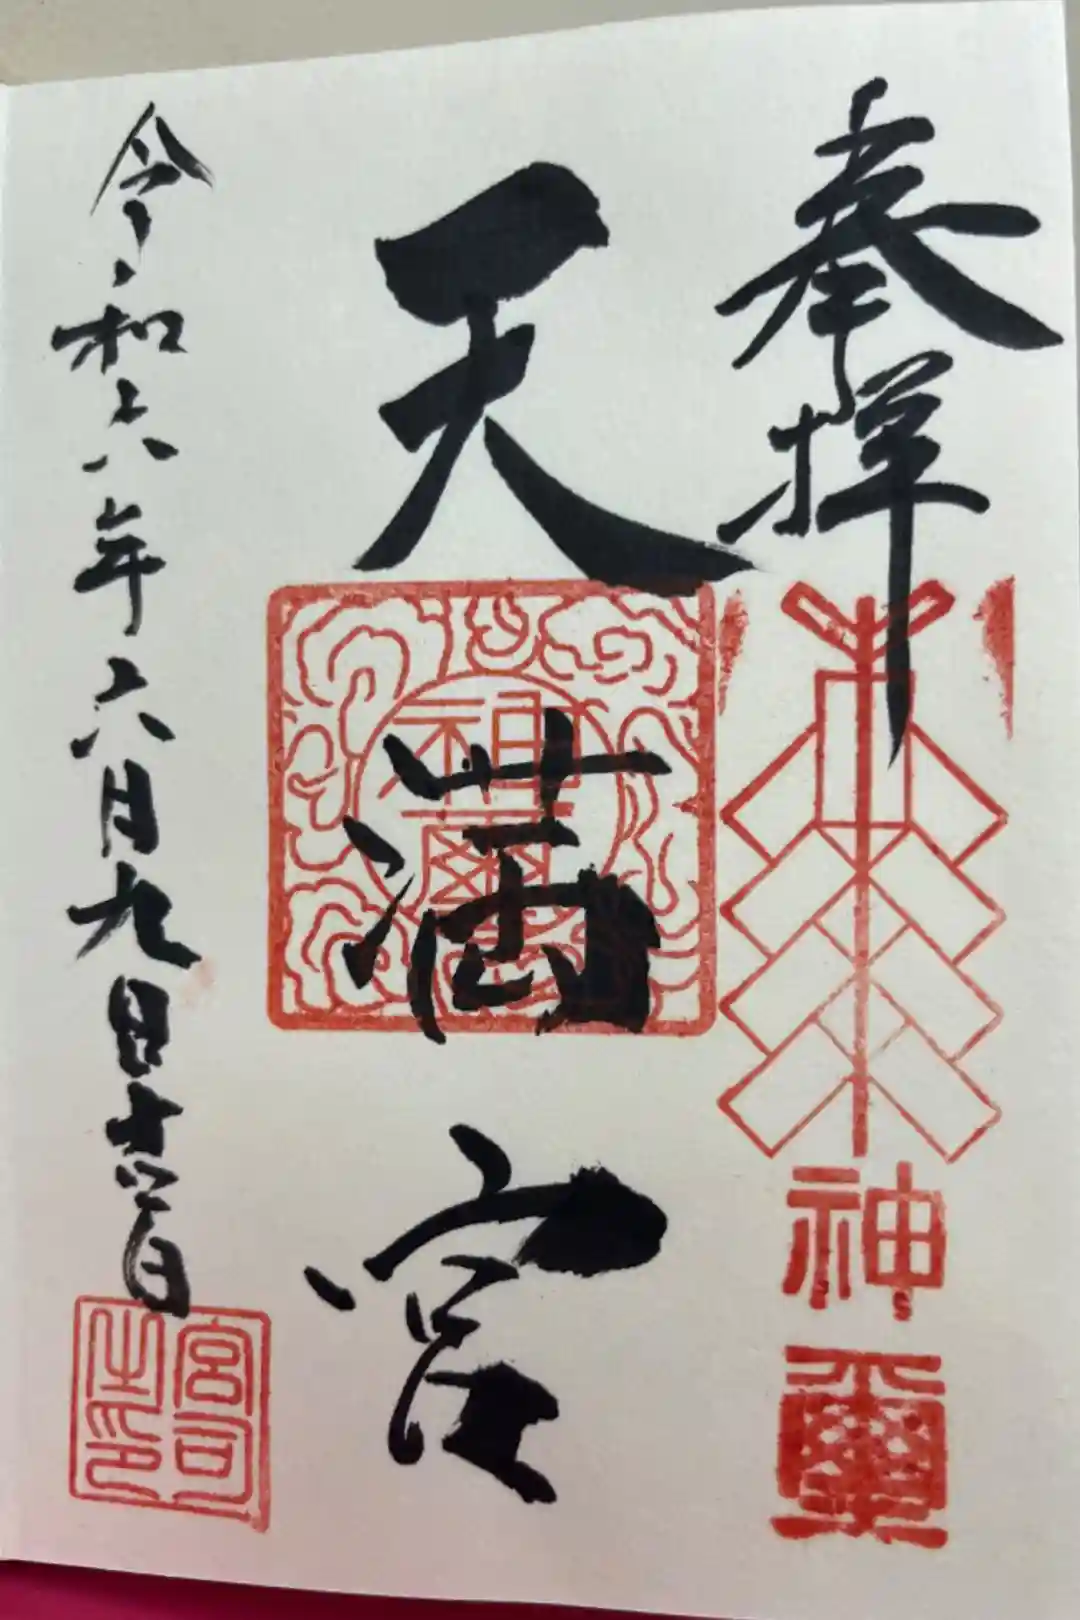 奉拝
神璽
天満宮
神璽
令和六年六月九日
宮司之印